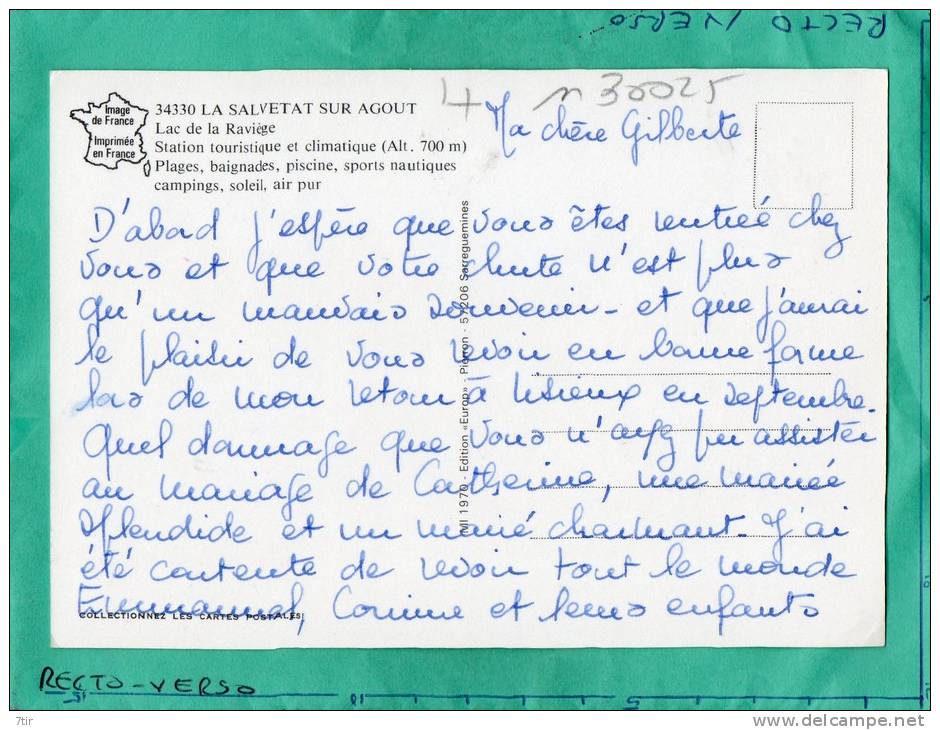 RECTO VERSO
Image de France
Imprimée en France
34330 LA SALVETAT SUR AGOUT
Lac de la Raviège
Station touristique et climatique (Alt. 700 m)
Plages, baignades, piscine, sports nautiques
campings, soleil, air pur
4
n 30025
Ma chère Gilberte
D'abord j'espère que vous êtes rentrée chez
vous et que votre chute n'est plus
qu'un mauvais souvenir - et que j'aurai
le plaisir de vous revoir en bonne forme
lors de mon retour à Lisieux en septembre.
Quel dommage que vous n'ayez pu assister
au mariage de Catherine, une mariée
splendide et un marié charmant - J'ai
été contente de revoir tout le monde
Emmanuel, Corinne et leurs enfants
MI 1970 - Edition «Europ» - Pierron - 57206 Sarreguemines
COLLECTIONNEZ LES CARTES POSTALES
RECTO-VERSO
15
10
5
7tir
www.delcampe.net